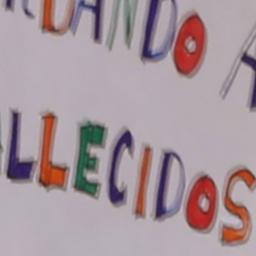 DANDO A
LLECIDOS